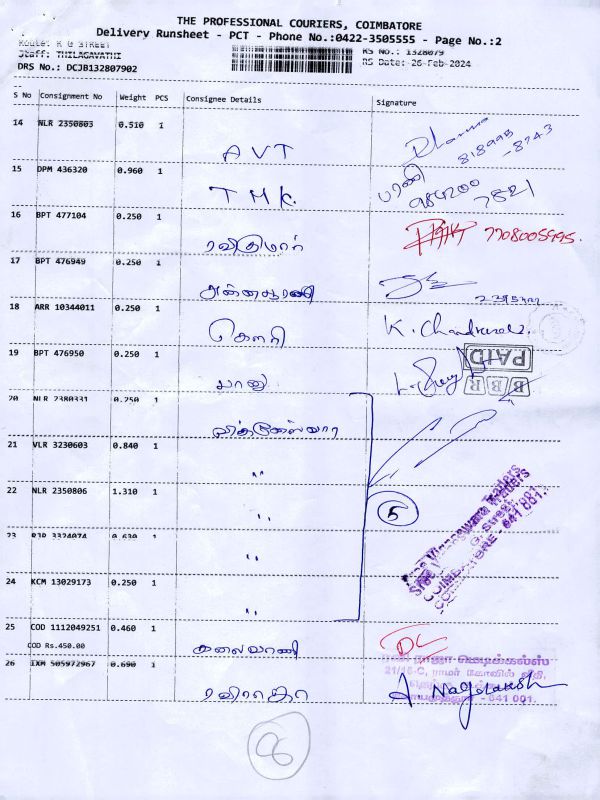 THE PROFESSIONAL COURIERS, COIMBATORE
Delivery Runsheet - PCT - Phone No.:0422-3505555 - Page No.:2
Route: R G STREET
Staff: THILAGAVATHI RS No.: 1328079
DRS No.: DCJB132807902 RS Date: 26-Feb-2024
S No Consignment No Weight PCS Consignee Details Signature
14 NLR 2350803 0.510 1
AVT Dharma 818995
-8743
15 DPM 436320 0.960 1
T M K. பரணி 984200
7821
16 BPT 477104 0.250 1
ரவிகுமார் 7708005995.
17 BPT 476949 0.250 1
அன்னபூரணி
18 ARR 10344011 0.250 1
கௌரி K. Chandra
19 BPT 476950 0.250 1
பானு PAID
B B R
20 NLR 2380331 0.250 1
விக்னேஸ்வரா
21 VLR 3230603 0.840 1
"
22 NLR 2350806 1.310 1
" 5
23 RJP 3324074 0.630 1
"
Sree Vigneswara Traders
COIMBATORE - 641 001.
24 KCM 13029173 0.250 1
"
25 COD 1112049251 0.460 1
COD Rs.450.00
கலைவாணி
26 IXM 505972967 0.690 1
21/15-C, ராமர் கோவில் வீதி,
- 641 001.
ரவிராஜா A. Nagolakshi
8